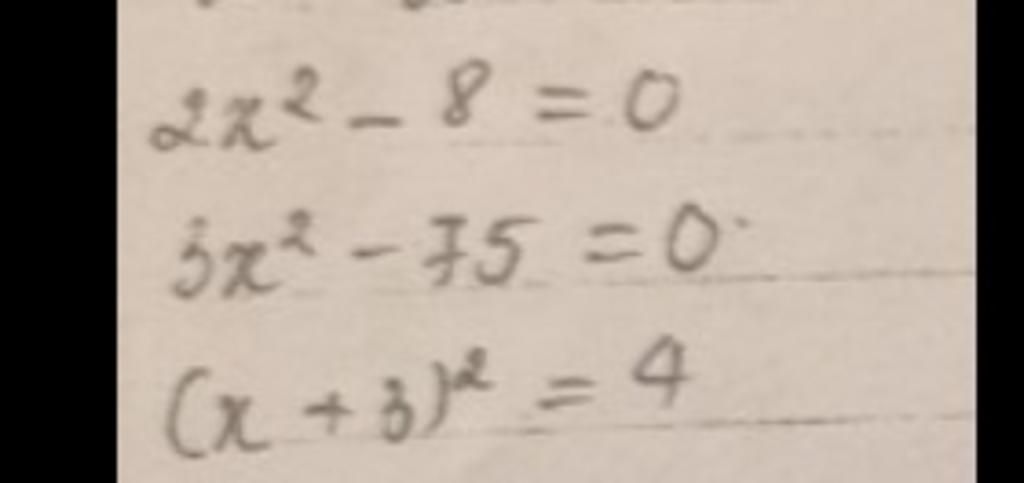 2x² - 8 = 0
3x² - 75 = 0
(x + 3)² = 4